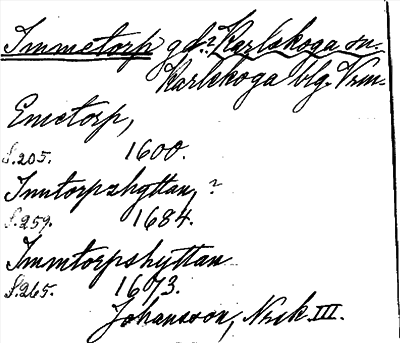 Immetorp gd.? Karlskoga sn.
Karlskoga blg. Vrm.
Emetorp,
S.205. 1600.
Imtorpzhyttan, ?
S.259. 1684.
Immtorpshyttan
S.265. 1673.
Johansson, Nrk III.